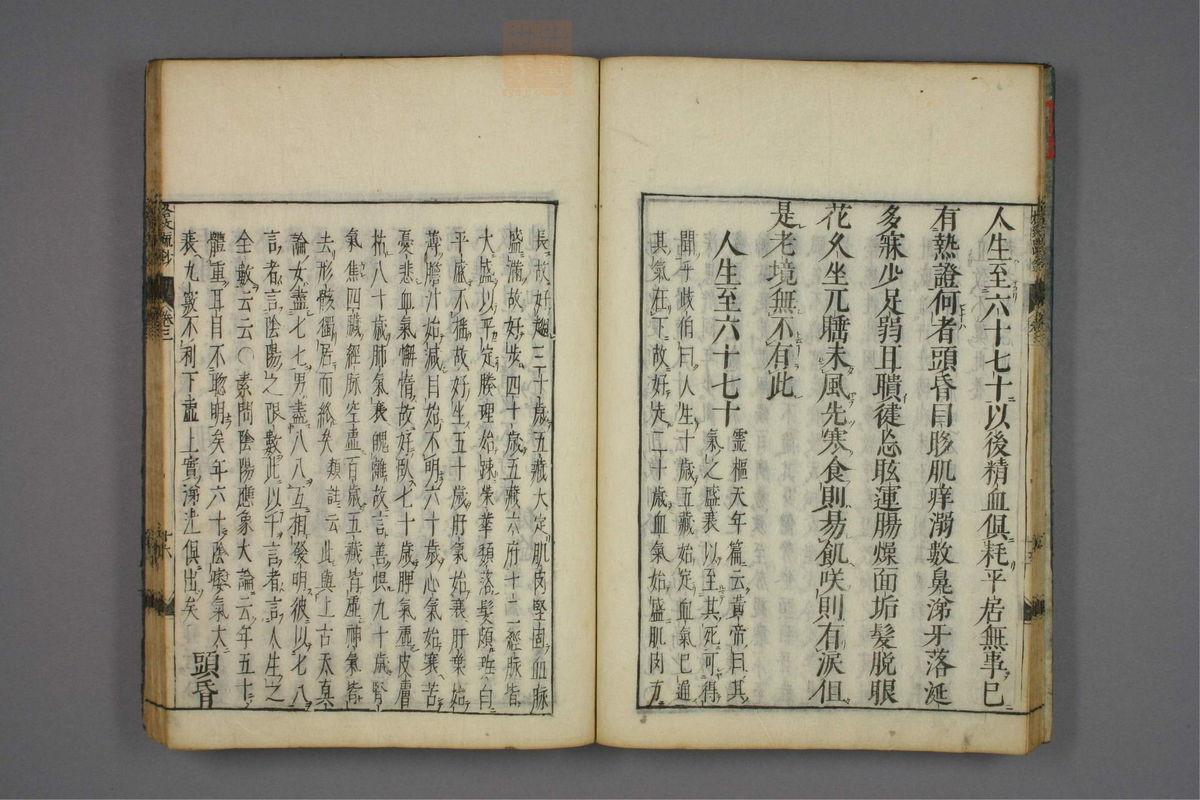 人生至六十七十以後精血俱耗平居無事已
有熱證何者頭昏目眵肌痒溺數鼻涕牙落涎
多寐少足弱耳聵徤忘眩運腸燥面垢髮脫眼
花久坐兀睡未風先寒食則易飢咲則有淚但
是老境無不有此
人生至六十七十
靈樞天年篇云黃帝曰其
氣之盛衰以至其死可得
聞乎岐伯曰人生十歲五藏始定血氣已通
其氣在下故好走二十歲血氣始盛肌肉方
長故好趨三十歲五藏大定肌肉堅固血脉
盛滿故好步四十歲五藏六府十二經脉皆
大盛以平定腠理始踈榮華頹落髮頗斑白
平盛不搖故好坐五十歲肝氣始衰肝葉始
薄膽汁始減目始不明六十歲心氣始衰苦
憂悲血氣懈惰故好臥七十歲脾氣虛皮膚
枯八十歲肺氣衰魄離故言善悮九十歲腎
氣焦四藏經脉空虛百歲五藏皆虛神氣皆
去形骸獨居而終矣 類註云此與上古天真
論女盡七七男盡八八互相發明彼以七八
言者言陰陽之限數此以十言者言人生之
全數云云〇素問陰陽應象大論云年五十
體重耳目不聰明矣年六十陰痿氣大
衰九竅不利下虛上實涕泣俱出矣
頭昏
卷三
十六